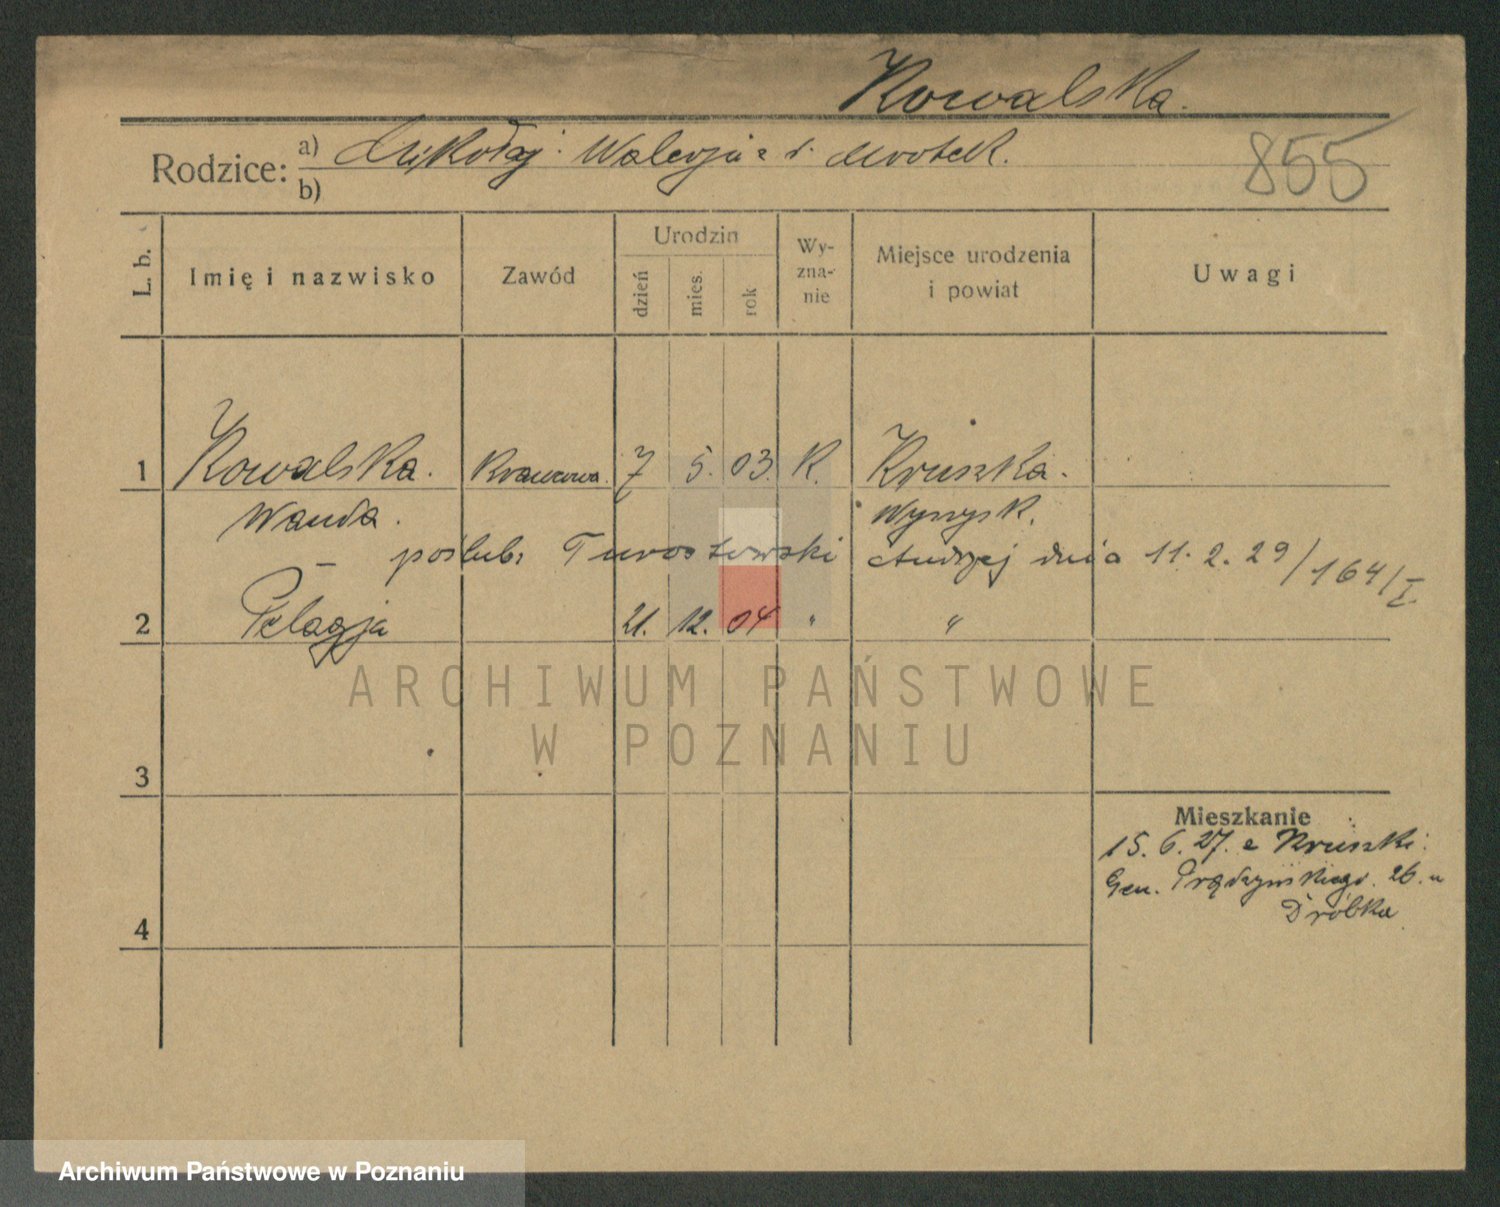 Kowalska.
Rodzice: a) Mikołaj i Walerja z d. Mrotek.
b)
855
L. b.
Imię i nazwisko
Zawód
Urodzin
dzień
mies.
rok
Wy-
zna-
nie
Miejsce urodzenia
i powiat
Uwagi
1 Kowalska. Krawcowa. 7 5. 03. K. Kruszka.
Wanda. Wyrzysk.
poślub: Turostowski Andrzej dnia 11. 2. 29/164/I.
2 Pelagja 21. 12. 04 " "
ARCHIWUM PAŃSTWOWE
W POZNANIU
3
Mieszkanie
15. 6. 27. z Kruszki.
Gen. Prądzyńskiego. 26. u
Dróbka
4
Archiwum Państwowe w Poznaniu